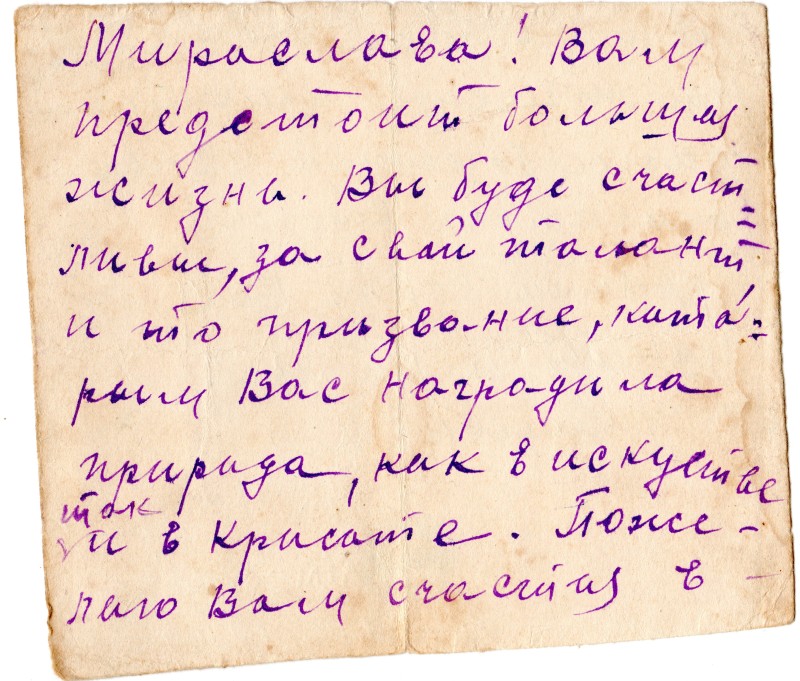 Мираслава! Вам
предстоит большая
жизнь. Вы буде счаст=
ливы, за свой талант,
и то призвание, кота=
рым Вас наградила
природа, как в искустве
так
и в красоте. Поже-
лаю Вам счастия в -